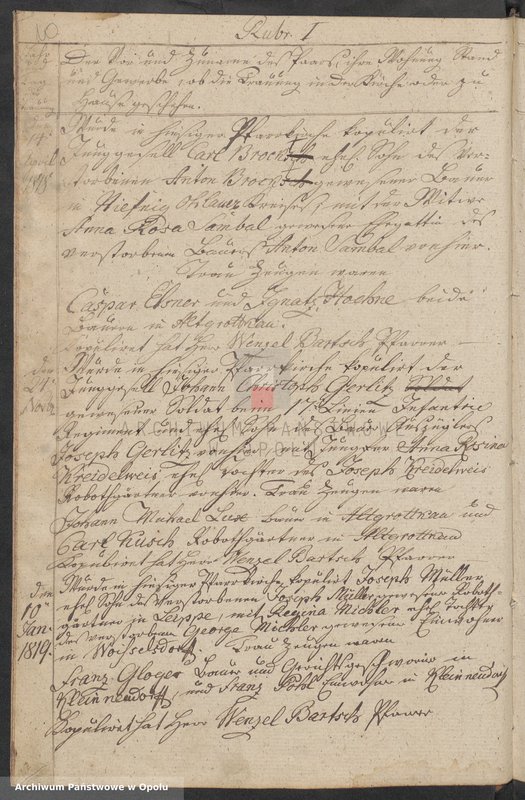 60
Rubr. I
Jahr
und
Tag
der
Trauung
Der Vor und Zuname des Paars, ihre Wohnung Stand
und Gewerbe, ob die Trauung in der Kirche oder zu
Hause geschehen.
14t
April
Wurde in hiesiger Pfarrkirche kopulirt der
Junggesell Carl Brock ehel. Sohn des ver-
storbenen Anton Brock gewesener Bauer
in Ohlauer Kreises, mit der Witwe
Anna Rosa Sambal gewesene Ehegattin des
verstorbenen Bauers Anton Sambal von hier.
Trau Zeugen waren
Caspar Elsner und Ignatz Hoehne beide
Bauern in Altgrottkau.
Kopulirt hat Herr Wenzel Bartsch Pfarrer
den
24t
Novbr
Wurde in hiesiger Pfarrkirche kopulirt der
Junggesell Johann Christoph Gerlitz
gewesener Soldat beim 17t Linien Infanterie
Regiment und ehel. Sohn des Bauer Auszüglers
Joseph Gerlitz von hier mit Jungfrau Anna Rosina
Kreidelweis, ehel. Tochter des Joseph Kreidelweis
Robothgärtner von hier. Trau Zeugen waren
Johann Michael Lux Bauer in Altgrottkau und
Carl Kusch Robothgärtner in Altgrottkau
Kopulirt hat Herr Wenzel Bartsch Pfarrer
den
10t
Jan:
1819.
Wurde in hiesiger Pfarrkirche kopulirt Joseph Müller,
ehel. Sohn des verstorbenen Joseph Müller gewesener Roboth-
gärtner in Leippe, mit Regina Michler ehel. Tochter
des verstorbenen George Michler gewesener Einwohner
in Woisselsdorf. Trau Zeugen waren
Franz Gloger Bauer und Gerichtsgeschworner in
Kleinneudorff, und Franz Pohl Einwohner in Kleinneudorf
Kopulirt hat Herr Wenzel Bartsch Pfarrer
Archiwum Państwowe w Opolu